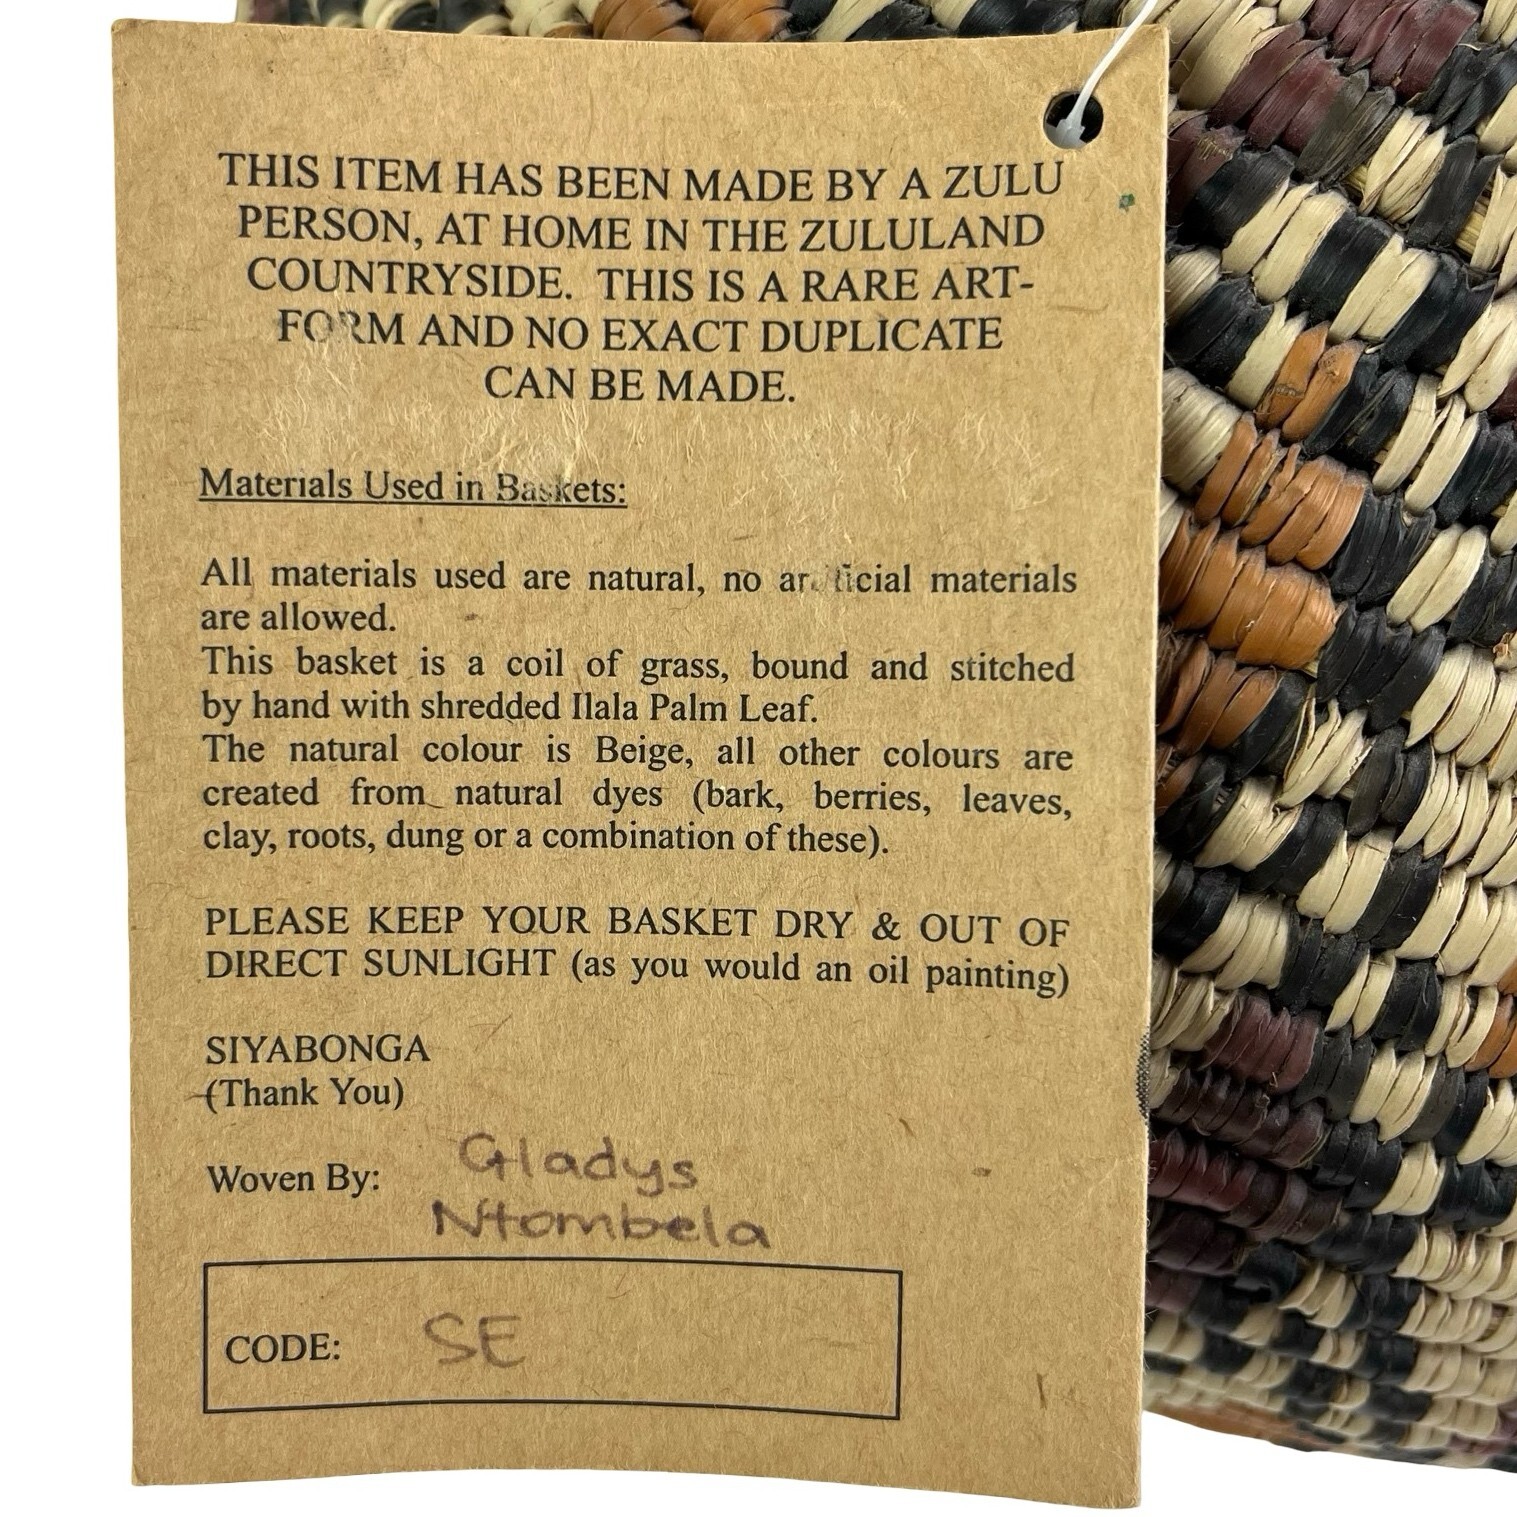 THIS ITEM HAS BEEN MADE BY A ZULU
PERSON, AT HOME IN THE ZULULAND
COUNTRYSIDE. THIS IS A RARE ART-
FORM AND NO EXACT DUPLICATE
CAN BE MADE.
Materials Used in Baskets:
All materials used are natural, no artificial materials
are allowed.
This basket is a coil of grass, bound and stitched
by hand with shredded Ilala Palm Leaf.
The natural colour is Beige, all other colours are
created from natural dyes (bark, berries, leaves,
clay, roots, dung or a combination of these).
PLEASE KEEP YOUR BASKET DRY & OUT OF
DIRECT SUNLIGHT (as you would an oil painting)
SIYABONGA
(Thank You)
Woven By: Gladys
Ntombela
CODE: SE